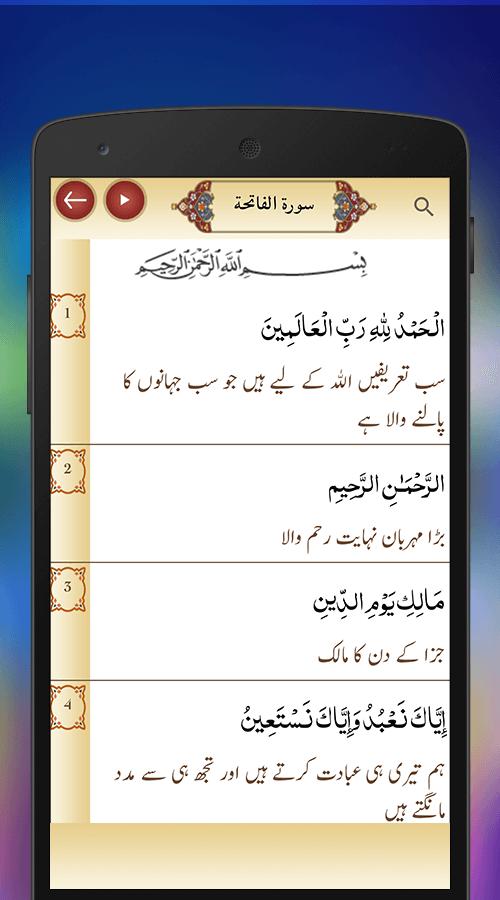 سورة الفاتحة
بِسْمِ اللَّهِ الرَّحْمَٰنِ الرَّحِيمِ
1
الْحَمْدُ لِلَّهِ رَبِّ الْعَالَمِينَ
سب تعریفیں اللہ کے لیے ہیں جو سب جہانوں کا
پالنے والا ہے
2
الرَّحْمَٰنِ الرَّحِيمِ
بڑا مہربان نہایت رحم والا
3
مَالِكِ يَوْمِ الدِّينِ
جزا کے دن کا مالک
4
إِيَّاكَ نَعْبُدُ وَإِيَّاكَ نَسْتَعِينُ
ہم تیری ہی عبادت کرتے ہیں اور تجھ ہی سے مدد
مانگتے ہیں